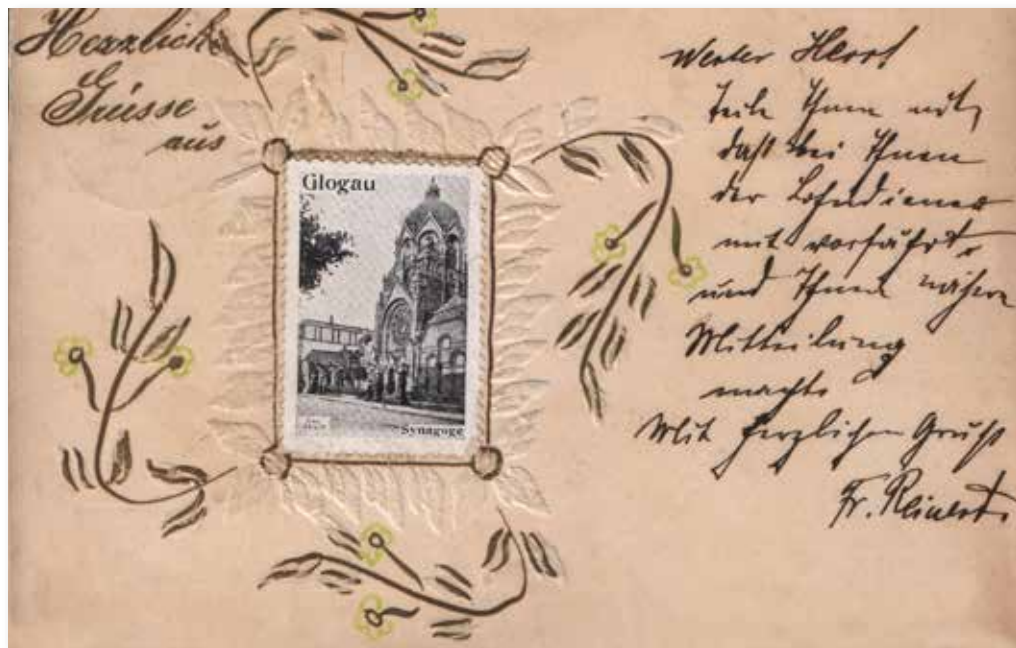 Herzliche
Grüsse
aus
Glogau
Synagoge
Werter Herr!
Teile Ihnen mit,
daß bei Ihnen
der Lohndiener
mit vorfährt,
und Ihnen nähere
Mitteilung
macht.
Mit herzlichen Gruß
Fr. Reinert.